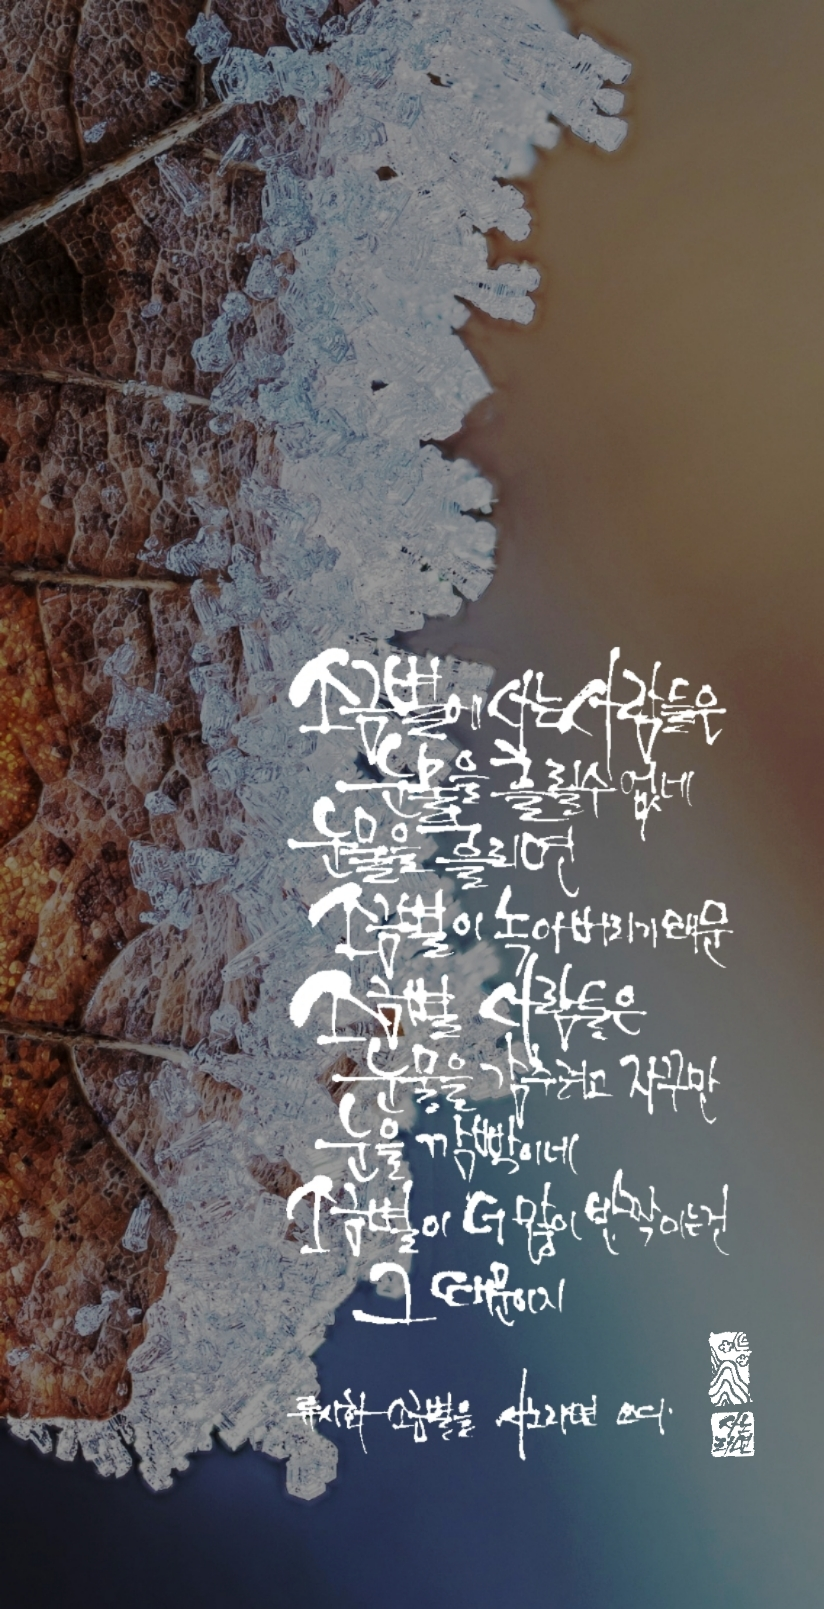 소금별에 사는 사람들은
눈물을 흘릴 수 없네
눈물을 흘리면
소금별이 녹아 버리기 때문
소금별 사람들은
눈물을 감추려고 자꾸만
눈을 깜빡이네
소금별이 더 많이 반짝이는 건
그 때문이지
류시화 소금별을 사노라면 쓰다.
사노
라면